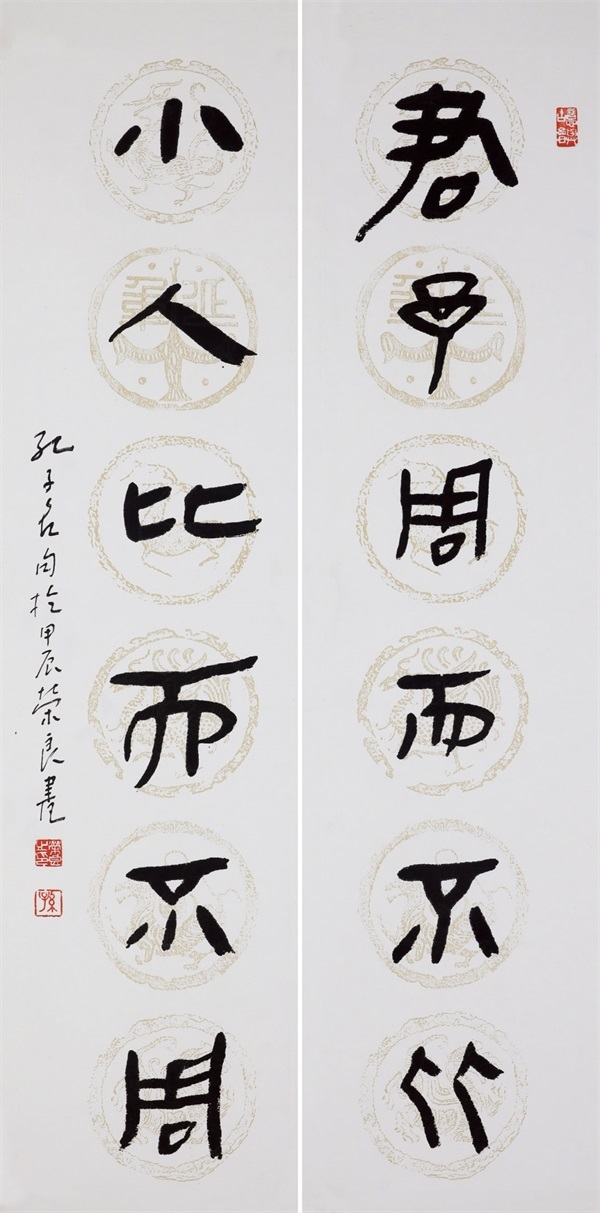 君子周而不比
小人比而不周
孔子名句於甲辰荣良書
榮良之印
孫